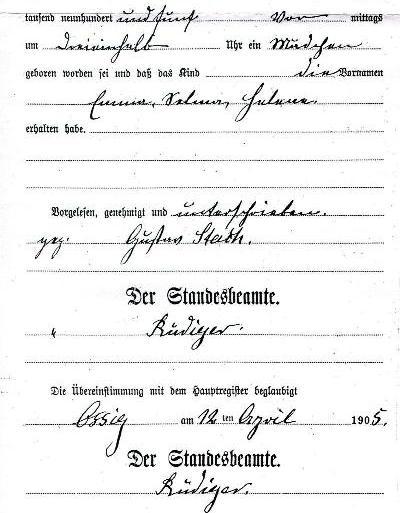 tausend neunhundert und fünf Vor mittags
um dreieinhalb Uhr ein Mädchen
geboren worden sei und daß das Kind die Vornamen
Emma, Selma, Helene.
erhalten habe.
Vorgelesen, genehmigt und unterschrieben.
gez. Gustav
Der Standesbeamte.
" Rüdiger.
Die Übereinstimmung mit dem Hauptregister beglaubigt
Ossig am 12 ten April 1905.
Der Standesbeamte.
Rüdiger.